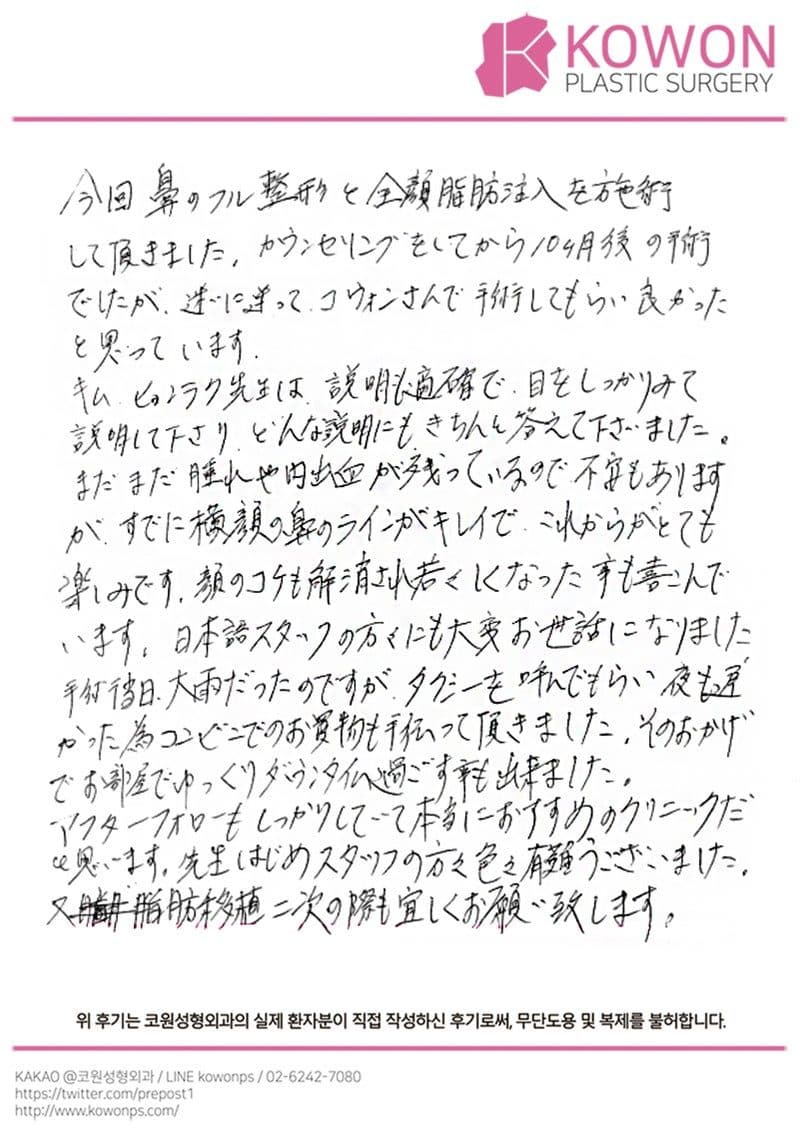 KOWON
PLASTIC SURGERY
今回鼻のフル整形と全顔脂肪注入を施術
して頂きました。カウンセリングをしてから10ヶ月後の手術
でしたが、迷いに迷って、コウォンさんで手術してもらい良かった
と思っています。
キム、ヒョンラク先生は、説明も適確で、目をしっかりみて
説明して下さり、どんな説明にもきちんと答えて下さいました。
まだまだ腫れや内出血が残っているので、不安もあります
が、すでに横顔の鼻のラインがキレイで、これからがとても
楽しみです。顔のコケも解消され若々しくなった事も喜こんで
います。日本語スタッフの方々にも大変お世話になりました
手術当日、大雨だったのですが、タクシーを呼んでもらい夜も遅
かった為コンビニでのお買物も手伝って頂きました。そのおかげ
でお部屋でゆっくりダウンタイム過ごす事も出来ました。
アフターフォローもしっかりしていて本当におすすめのクリニックだ
と思います。先生はじめスタッフの方々色々有難うございました。
又脂肪移植二次の際も宜しくお願い致します。
위 후기는 코원성형외과의 실제 환자분이 직접 작성하신 후기로써, 무단도용 및 복제를 불허합니다.
KAKAO @코원성형외과 / LINE kowonps / 02-6242-7080
https://twitter.com/prepost1
http://www.kowonps.com/